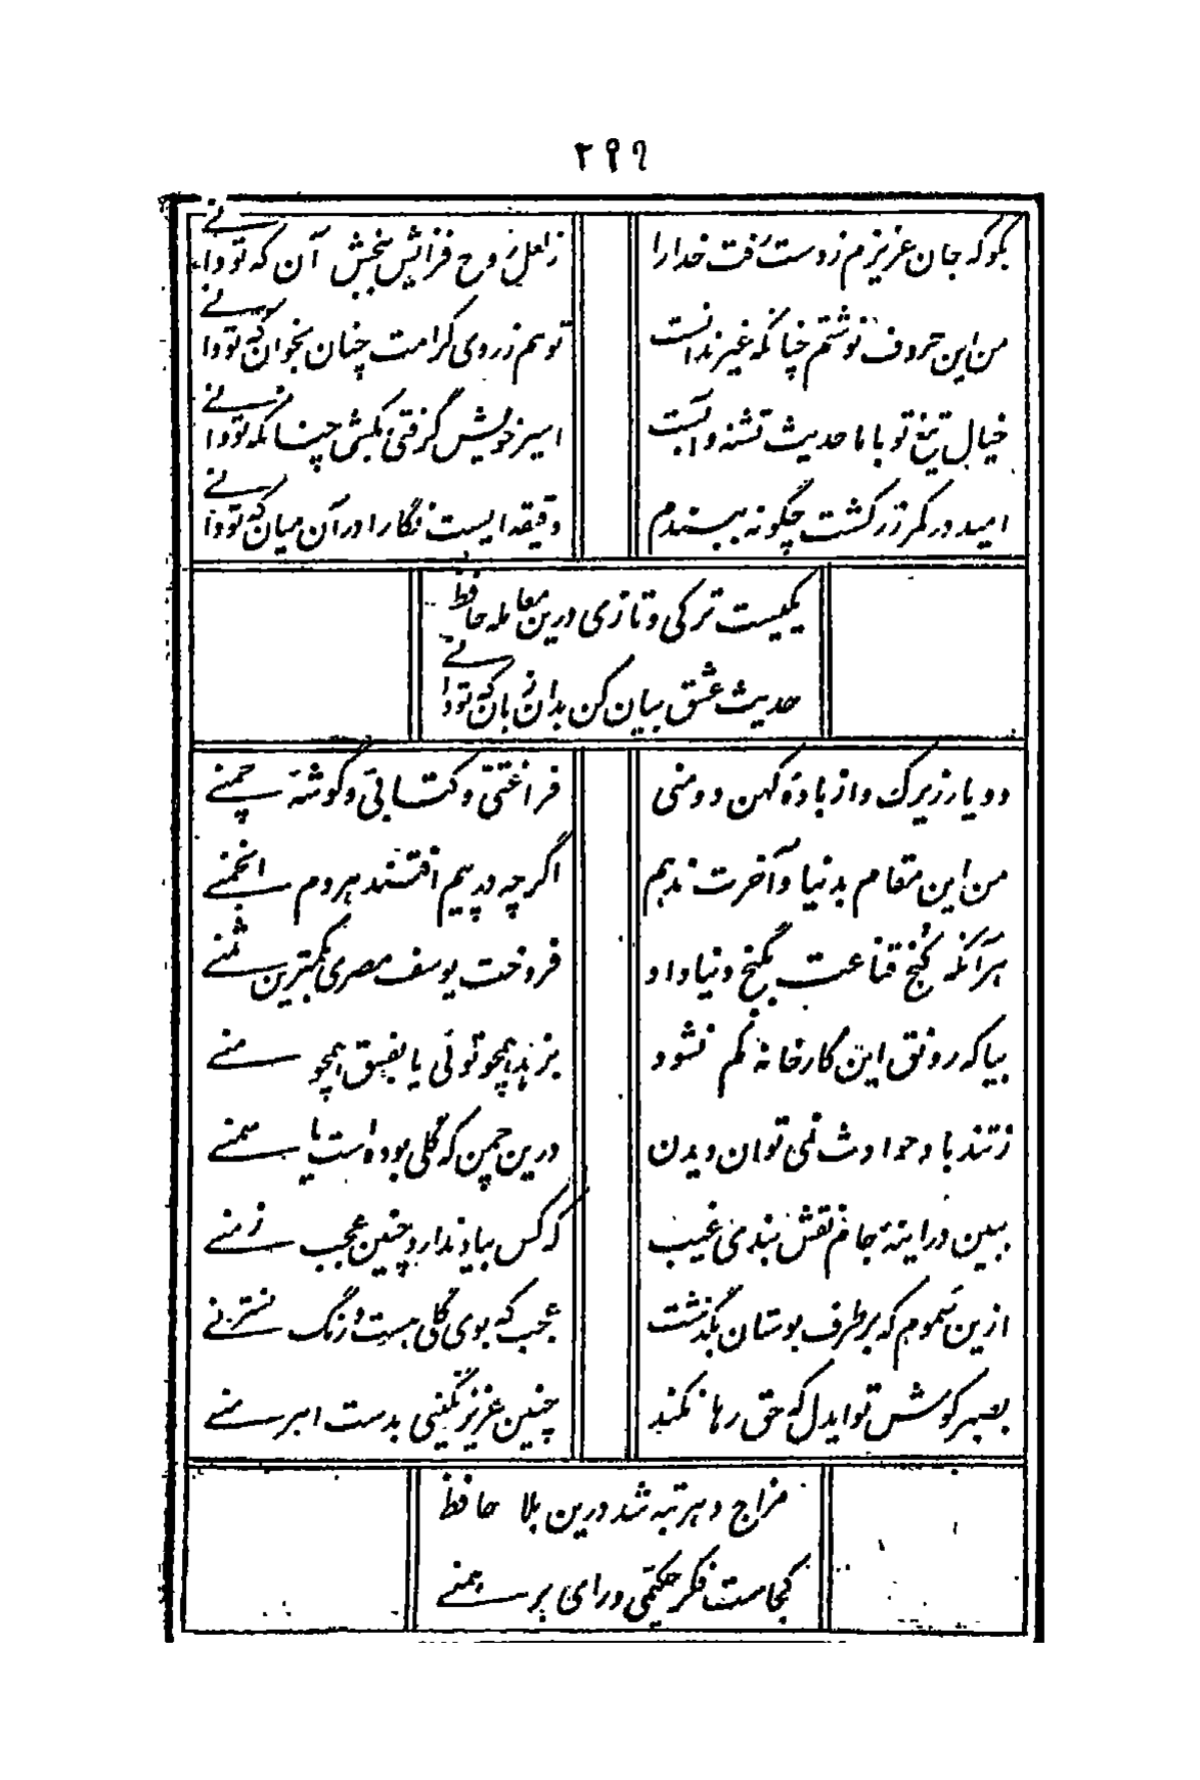 ۲۹۶
بگو که جان عزیزم ز دست رفت خدارا
ز لعل روح فزایش ببخش آن که تو دانی
من این حروف نوشتم چنانکه غیر ندانست
تو هم ز روی کرامت چنان بخوان که تو دانی
خیال تیغ تو با ما حدیث تشنه و آبست
اسیر خویش گرفتی بکش چنانکه تو دانی
امید در کمر زرکشت چگونه ببندم
دقیقه ایست نگارا در آن میان که تو دانی
یکیست ترکی و تازی درین معامله حافظ
حدیث عشق بیان کن بدان زبان که تو دانی
دو یار زیرک و از بادهٔ کهن دو منی
فراغتی و کتابی و گوشهٔ چمنے
من این مقام بدنیا و آخرت ندهم
اگرچه در پیم افتند هر دم انجمنے
هر آنکه کنج قناعت بگنج دنیا داد
فروخت یوسف مصری بکمترین ثمنے
بیا که رونق این کارخانه کم نشود
بزهد همچو توئی یا بفسق همچو منے
ز تند باد حوادث نمی توان دیدن
درین چمن که گلی بوده است یا سمنے
ببین در اینهٔ جام نقش بندی غیب
که کس بیاد ندارد چنین عجب زمنے
ازین سموم که بر طرف بوستان بگذشت
عجب که بوی گلی هست و رنگ نسترنے
بصبر کوش تو ایدل که حق رها نکند
چنین عزیز نگینی بدست اهرمنے
مزاج دهر تبه شد درین بلا حافظ
کجاست فکر حکیمی و رای برهمنے